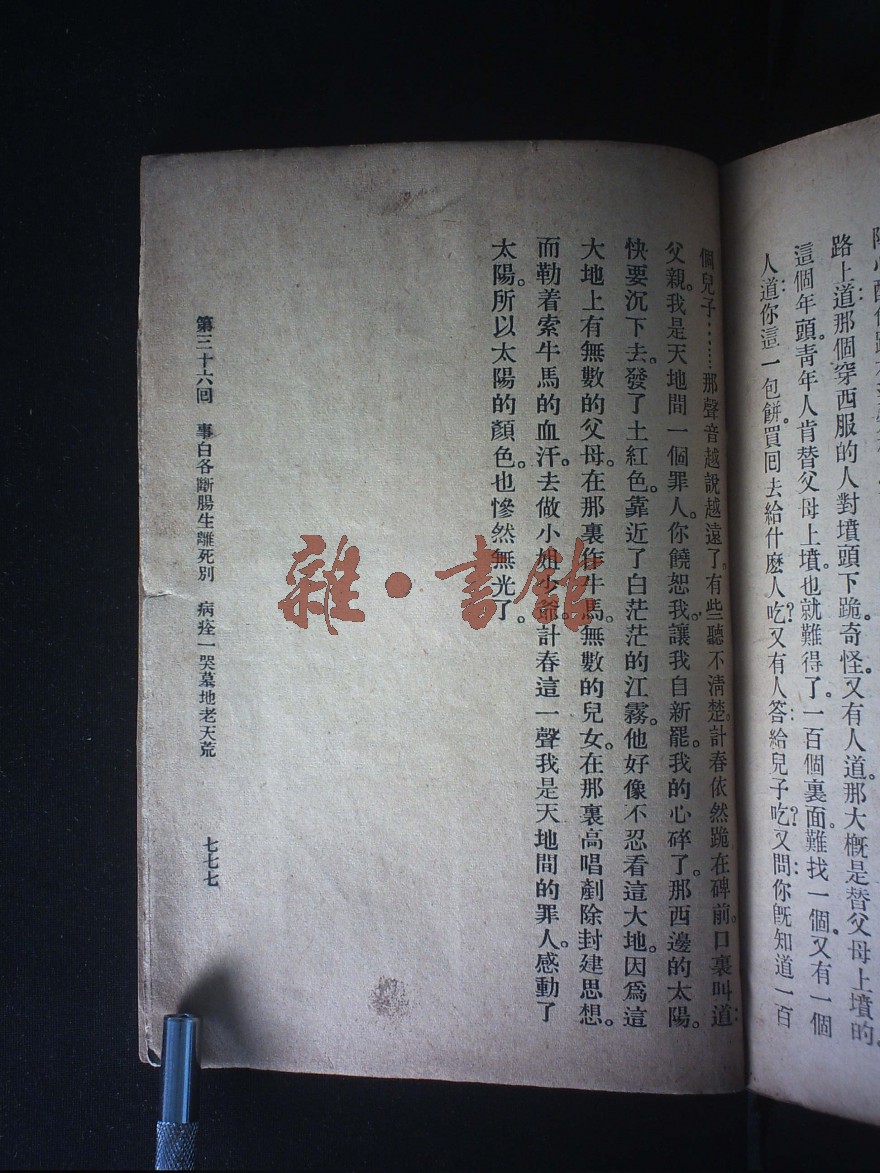 路上道：那個穿西服的人對墳頭下跪。奇怪。又有人道。那大概是替父母上墳的。
這個年頭。青年人肯替父母上墳。也就難得了。一百個裏面。難找一個。又有一個
人道：你這一包餅。買回去給什麽人吃？又有人答：給兒子吃？又問：你旣知道一百
個兒子……那聲音越說越遠了。有些聽不淸楚。計春依然跪在碑前。口裏叫道：
父親。我是天地間一個罪人。你饒恕我。讓我自新罷。我的心碎了。那西邊的太陽。
快要沉下去。發了土紅色。靠近了白茫茫的江霧。他好像不忍看這大地。因爲這
大地上有無數的父母。在那裏作牛馬。無數的兒女。在那裏高唱剷除封建思想。
而勒着索牛馬的血汗。去做小姐少爺。計春這一聲我是天地間的罪人。感動了
太陽。所以太陽的顏色。也慘然無光了。
第三十六回　事白各斷腸生離死別　病痊一哭墓地老天荒
七七七
雜·書館